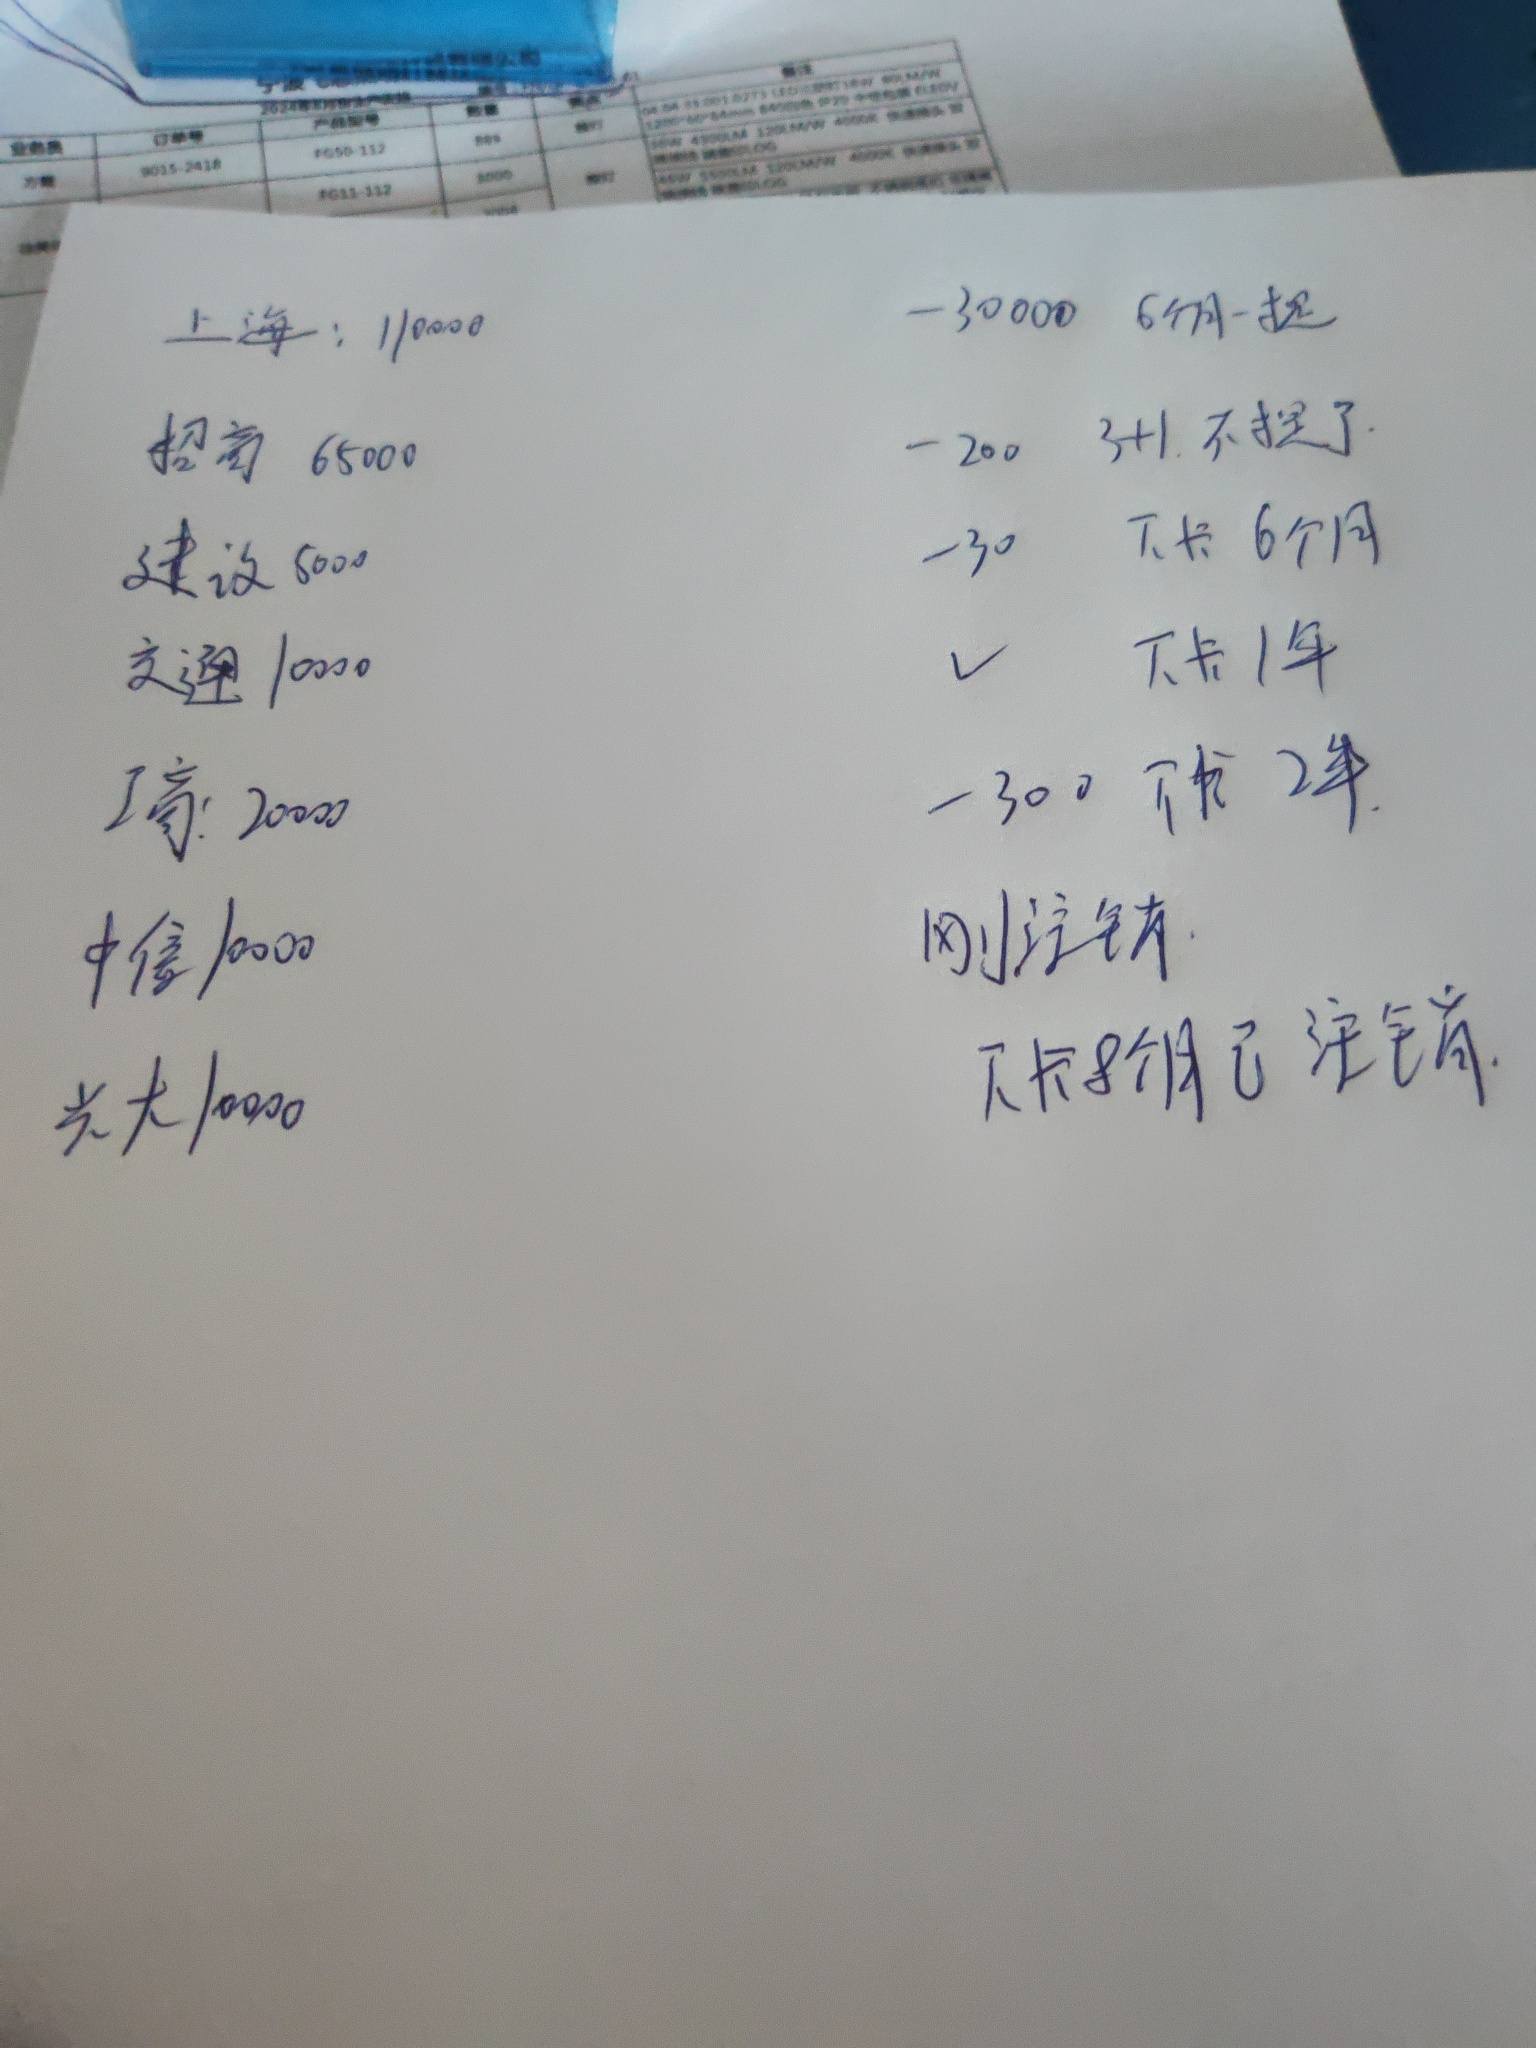 2024年
备注
业务员 订单号 产品型号 数量
9015-2418 FG50-112
FG11-112 3000
上海：110000 -30000 6个月一提
招商 65000 -200 3+1.不提了.
建设 5000 -30 下卡 6个月
交通 10000 ✓ 下卡 1年
工商：20000 -300 下卡 2年.
中信 10000 刚注销.
光大 10000 下卡8个月已注销.